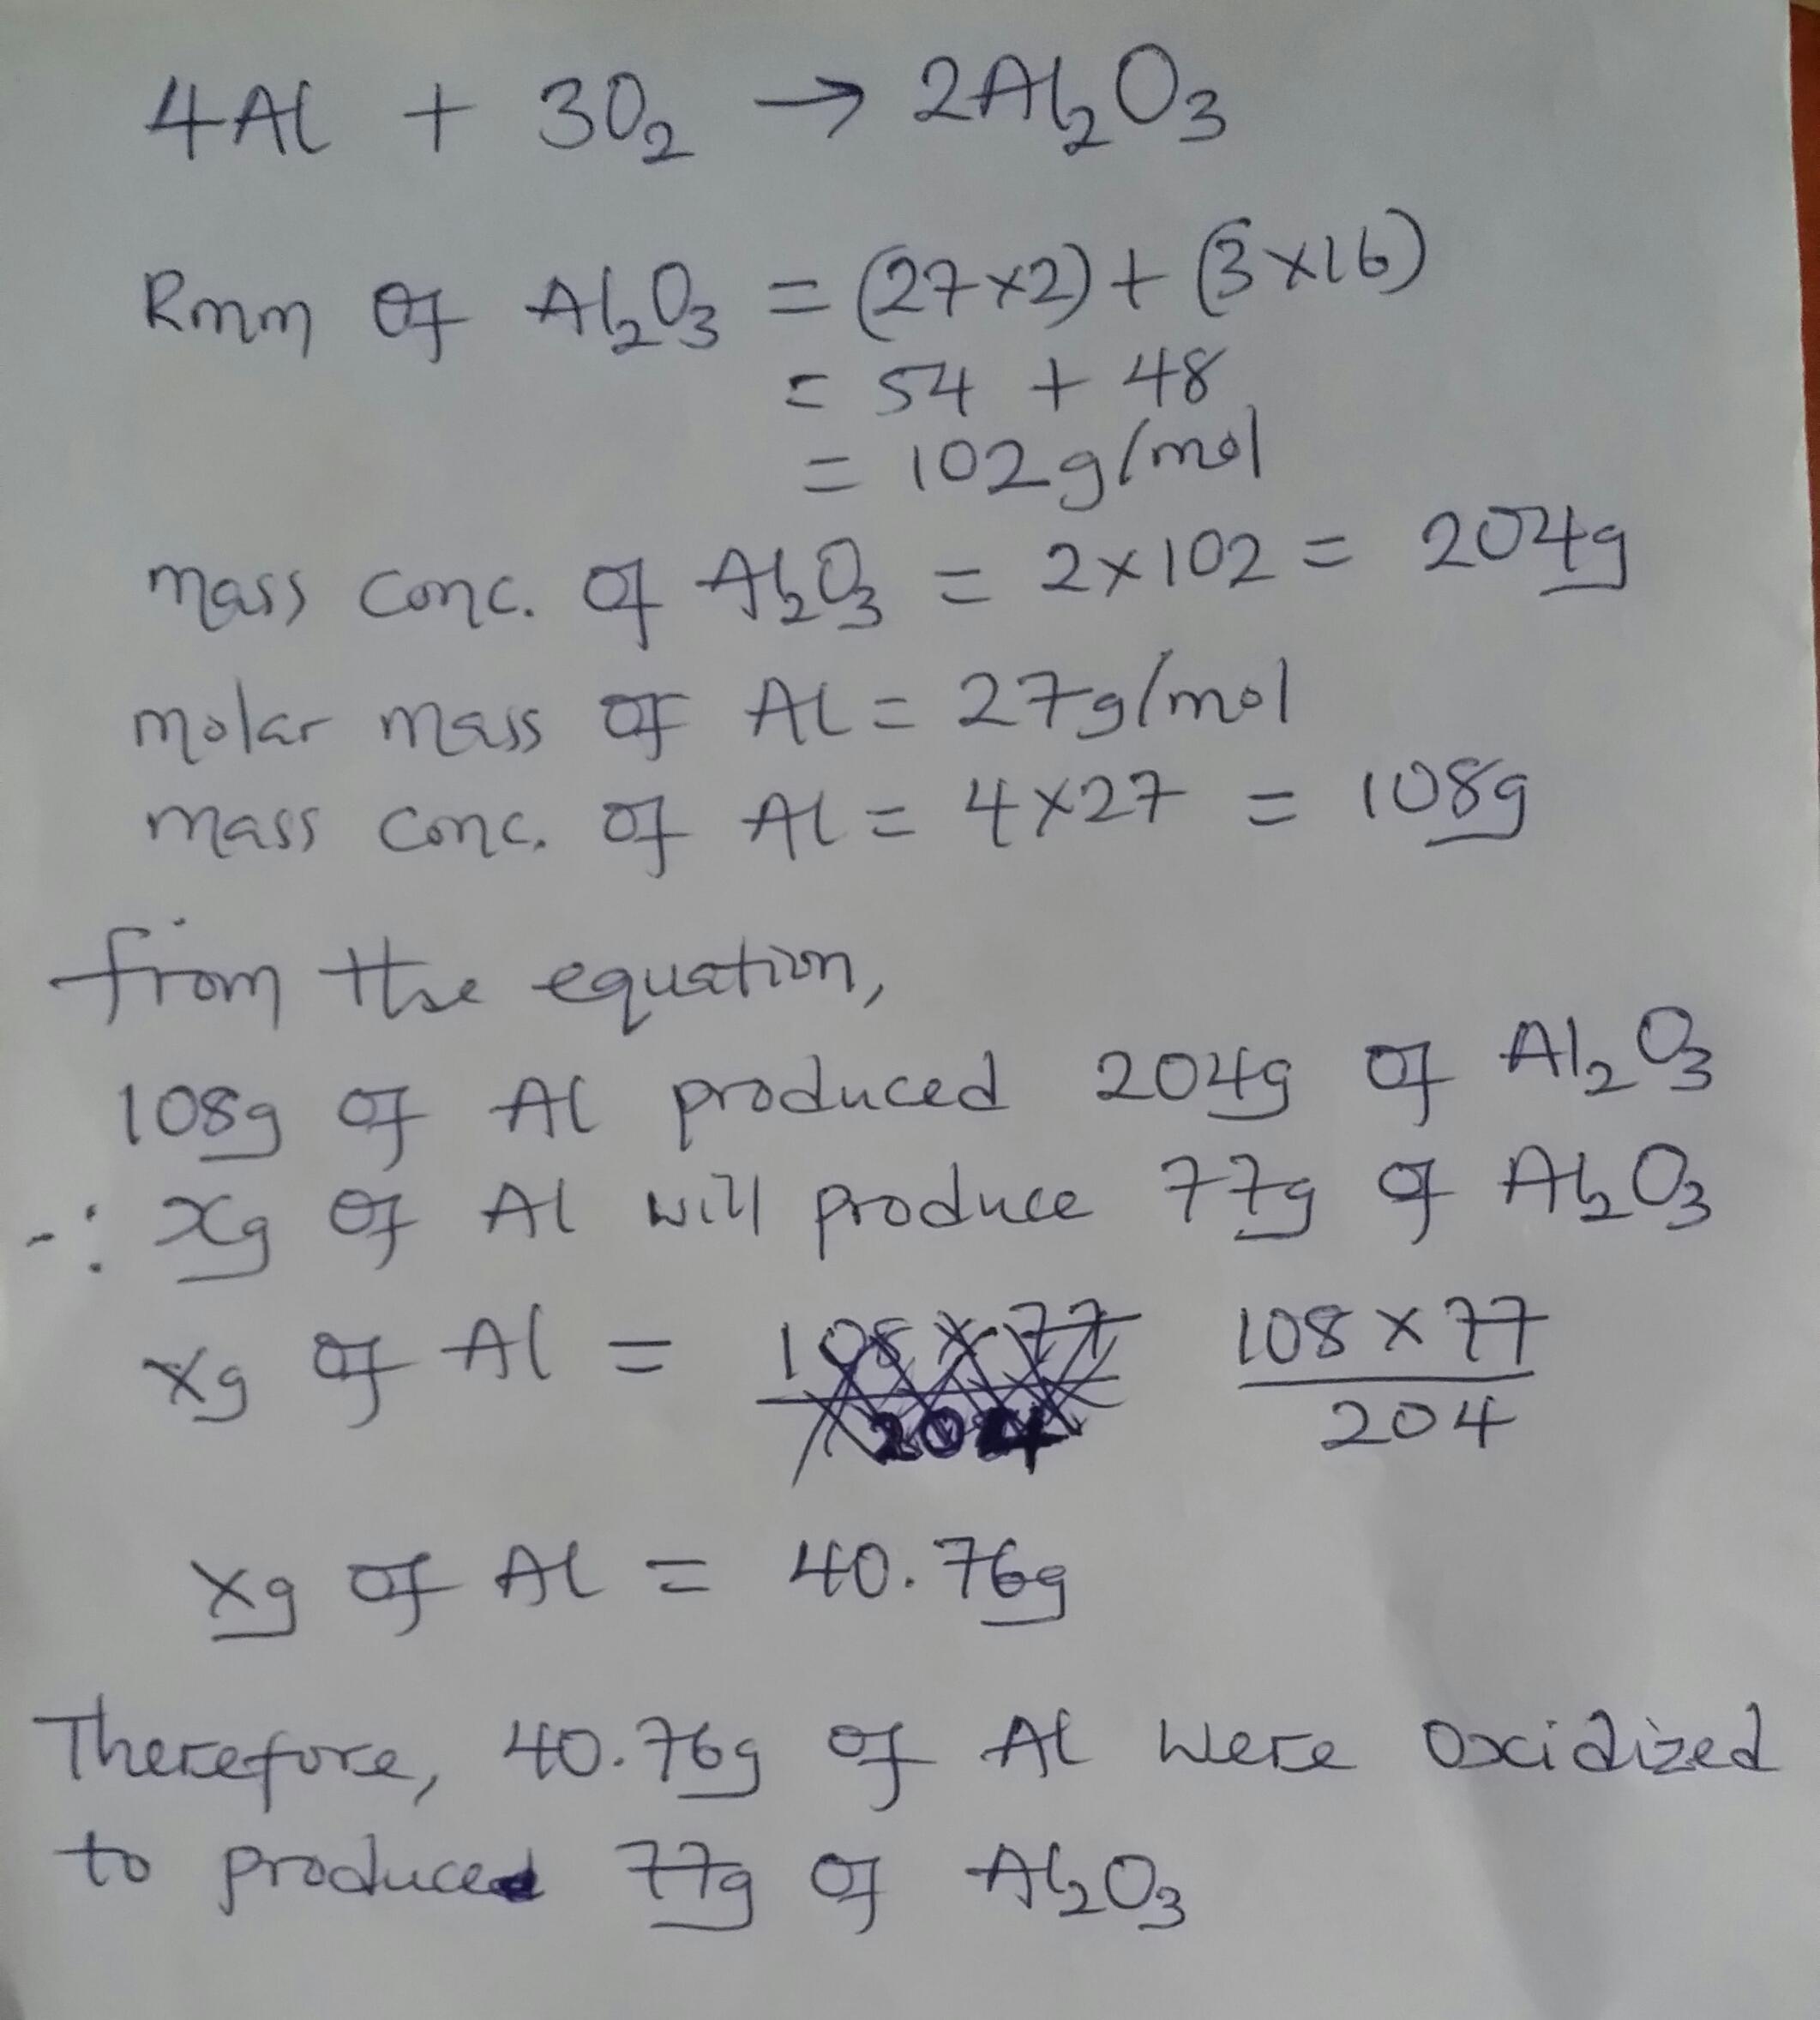 4Al + 3O₂ → 2Al₂O₃
Rmm of Al₂O₃ = (27×2) + (3×16)
= 54 + 48
= 102g/mol
mass conc. of Al₂O₃ = 2×102 = 204g
molar mass of Al = 27g/mol
mass conc. of Al = 4×27 = 108g
from the equation,
108g of Al produced 204g of Al₂O₃
∴ xg of Al will produce 77g of Al₂O₃
xg of Al = 108×77/204 108×77/204
xg of Al = 40.76g
Therefore, 40.76g of Al were oxidized
to produced 77g of Al₂O₃